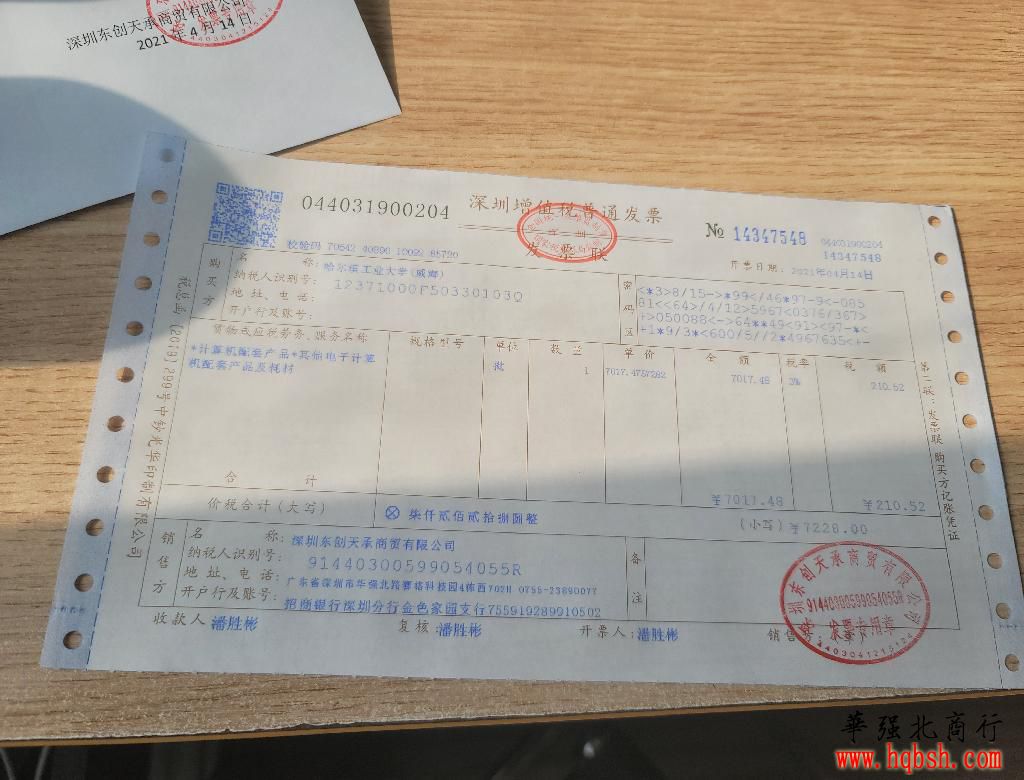 深圳东创天承商贸有限公司
2021 年 4 月 14 日
4403041215124
044031900204
深圳增值税普通发票
发票联
№ 14347548
044031900204
14347548
开票日期: 2021年04月14日
校验码 70542 40890 10092 85790
税总函〔2019〕299号中钞光华印制有限公司
购买方
名称: 哈尔滨工业大学(威海)
纳税人识别号: 12371000F50330103Q
地址、电话:
开户行及账号:
密码区
<*3>8/15->*99</46*97-9<-085
81<<64>/4/12>5967<0376/367>
+>050088<->64**49<91><97-*<
+1*9/3*<600/5//2*4967635<+-
货物或应税劳务、服务名称 规格型号 单位 数量 单价 金额 税率 税额
*计算机配套产品*其他电子计算 批 1 7017.4757282 7017.48 3% 210.52
机配套产品及耗材
合计 ¥7017.48 ¥210.52
价税合计(大写) ⊗ 柒仟贰佰贰拾捌圆整 (小写) ¥7228.00
销售方
名称: 深圳东创天承商贸有限公司
纳税人识别号: 91440300599054055R
地址、电话: 广东省深圳市华强北路赛格科技园4栋西702H 0755-23890077
开户行及账号: 招商银行深圳分行金色家园支行755919289910502
备注
收款人: 潘胜彬 复核: 潘胜彬 开票人: 潘胜彬 销售
第二联:发票联 购买方记账凭证
深圳东创天承商贸有限公司
91440300599054055R
发票专用章
4403041215124
華强北商行
www.hqbsh.com